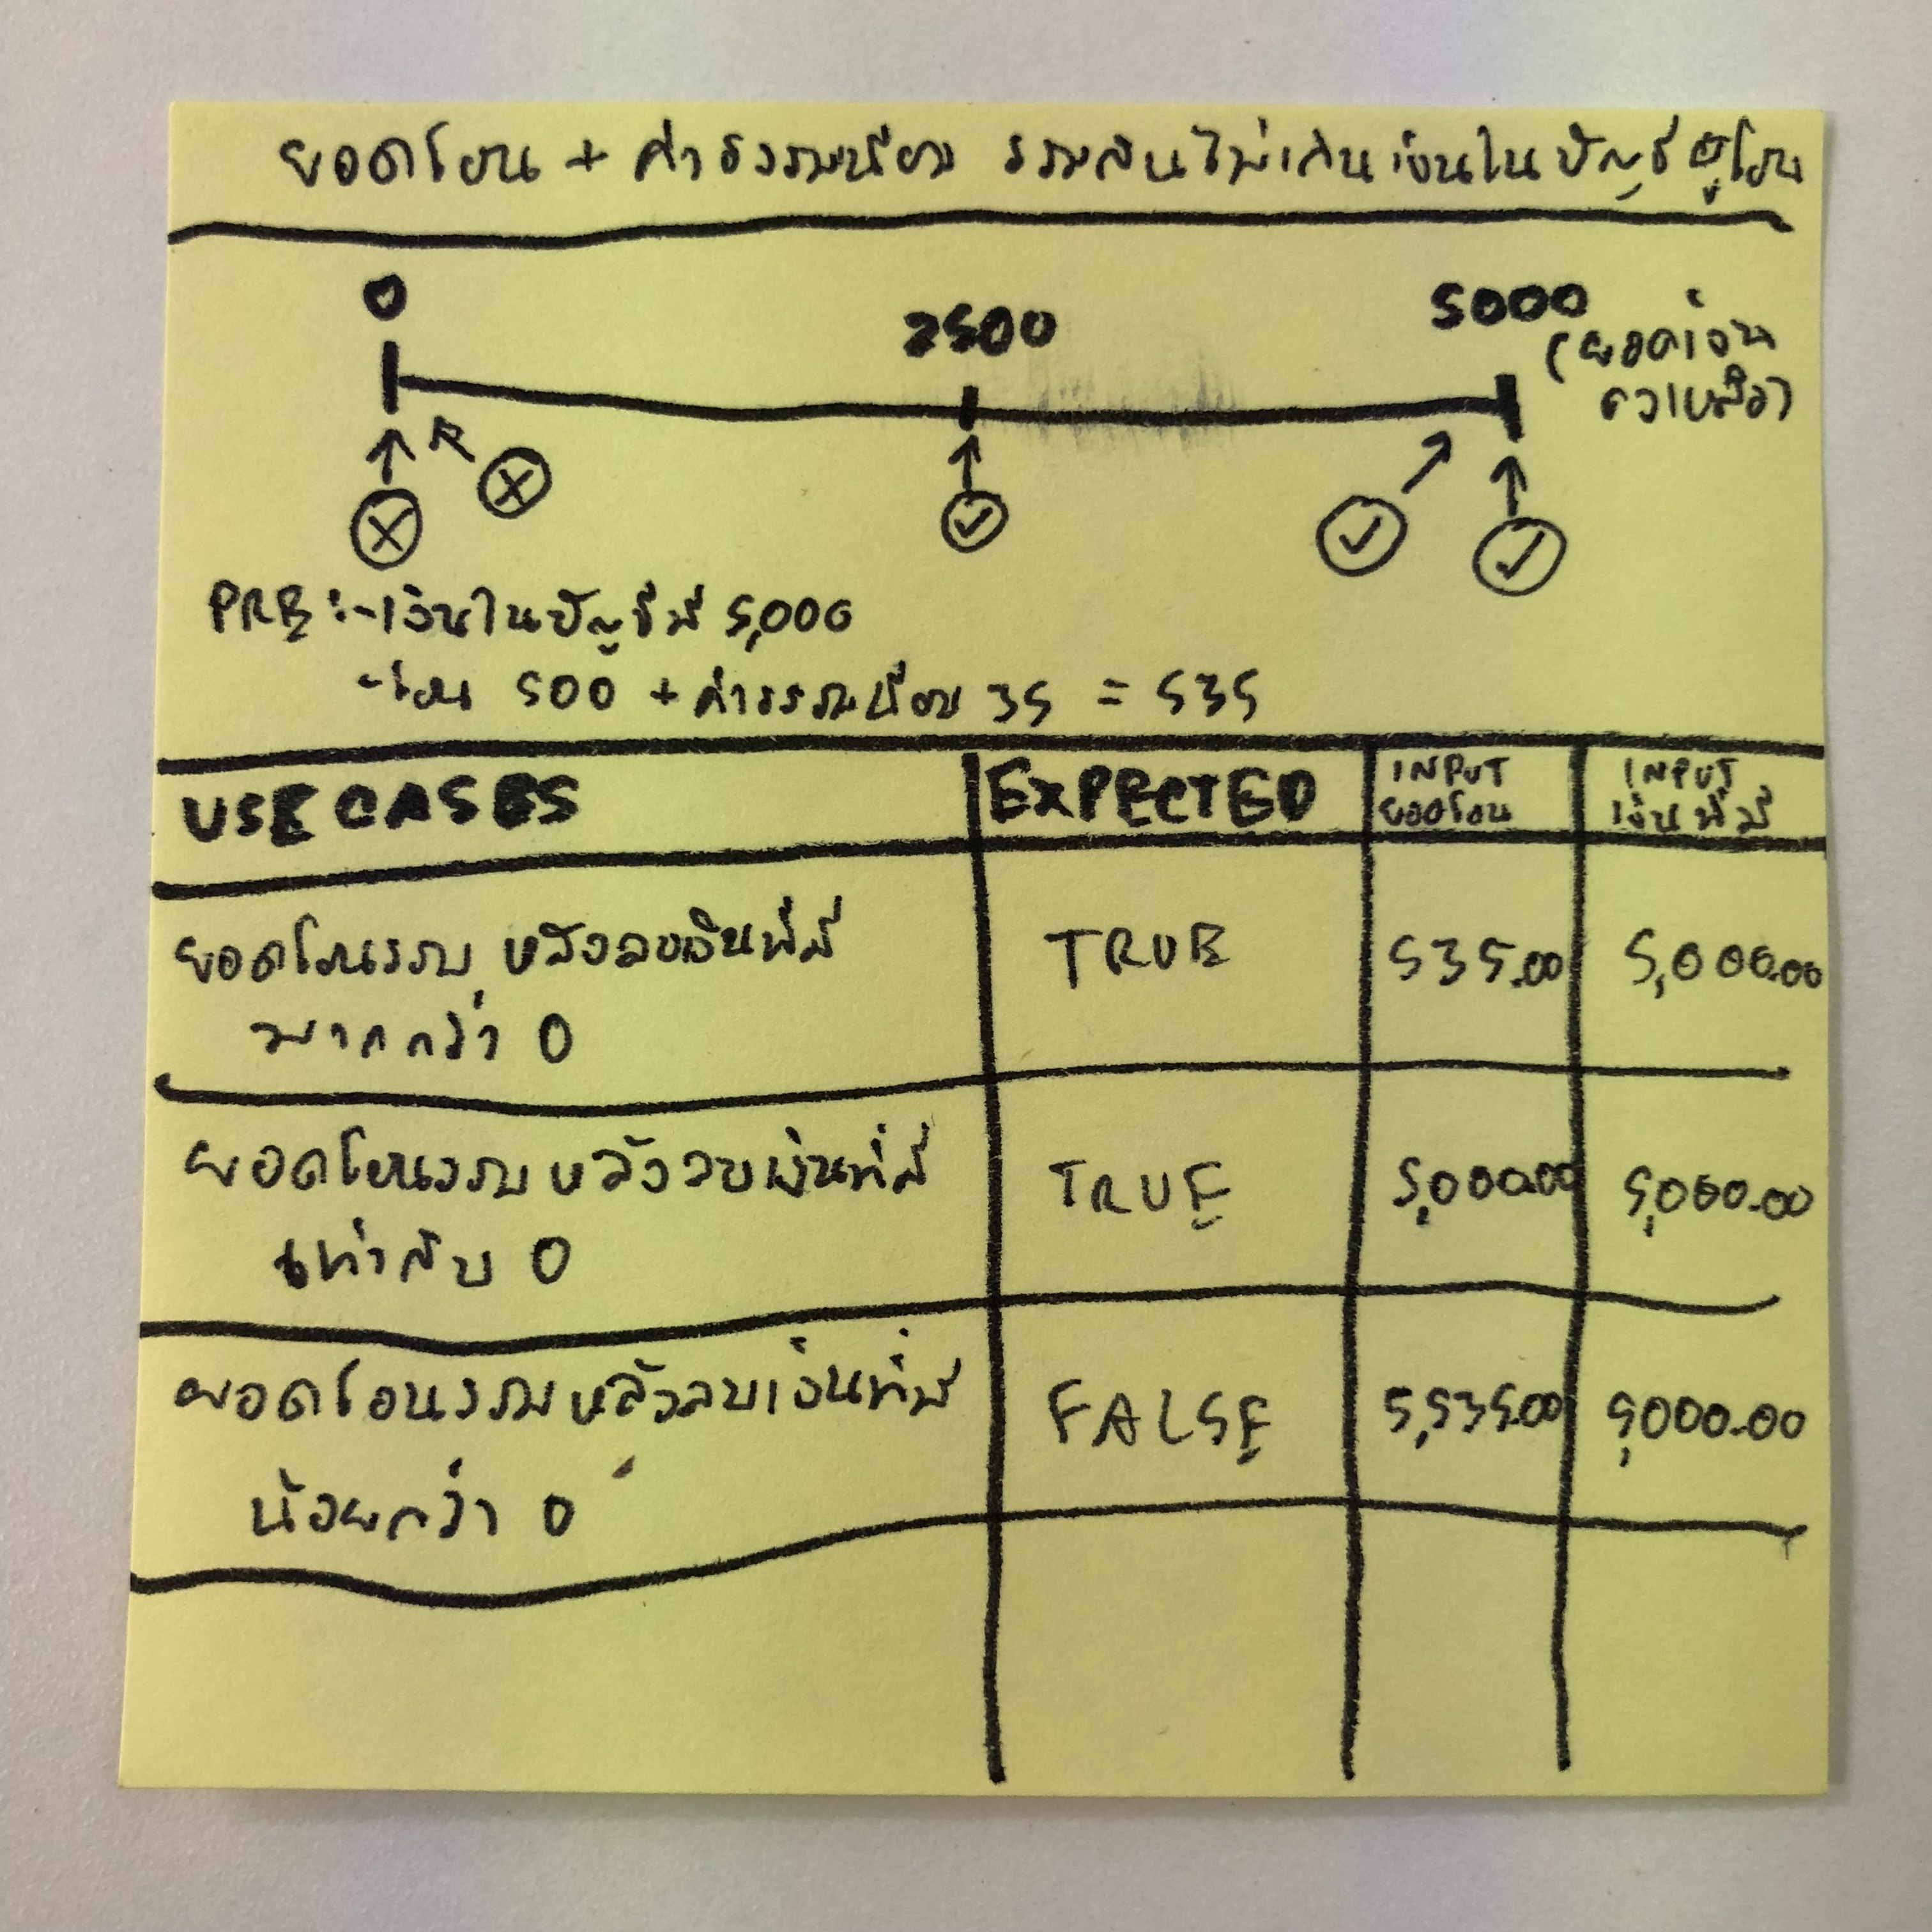 ยอดโอน + ค่าธรรมเนียม รวมกันไม่เกินเงินในบัญชีผู้โอน
0
2500
5000
(ยอดเงิน
คงเหลือ)
PRE :-เงินในบัญชีมี 5,000
-โอน 500 + ค่าธรรมเนียม 35 = 535
USE CASES EXPECTED INPUT ยอดโอน INPUT เงินที่มี
ยอดโอนรวม หลังลบเงินที่มี TRUE 535.00 5,000.00
มากกว่า 0
ยอดโอนรวมหลังลบเงินที่มี TRUE 5,000.00 5,000.00
เท่ากับ 0
ยอดโอนรวมหลังลบเงินที่มี FALSE 5,535.00 5,000.00
น้อยกว่า 0